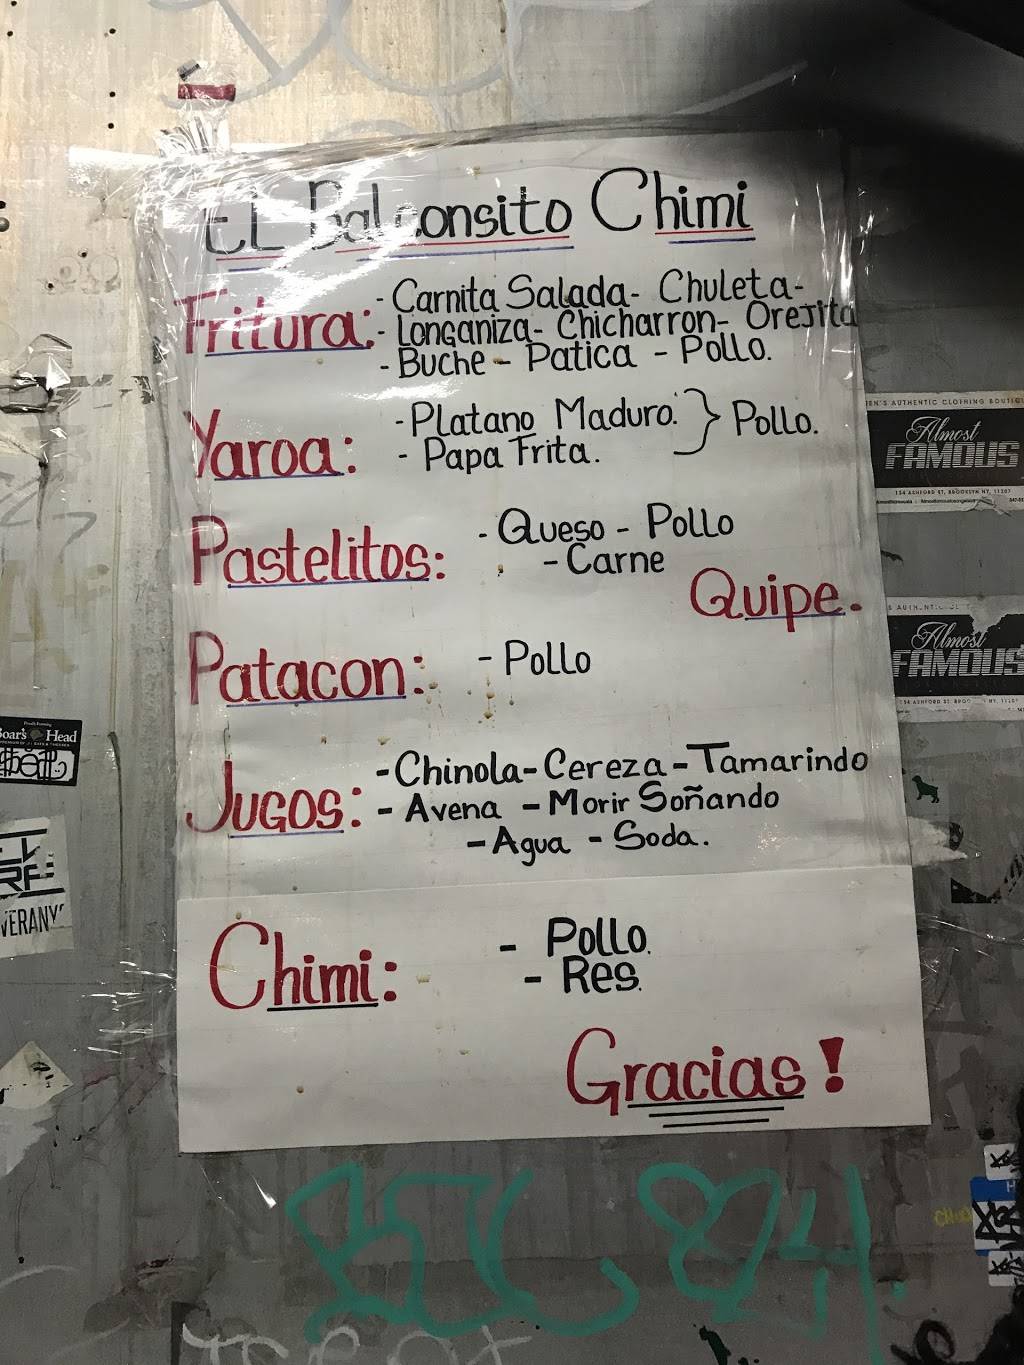 EL Balconsito Chimi
Fritura: - Carnita Salada - Chuleta -
- Longaniza - Chicharron - Orejita
- Buche - Patica - Pollo.
Yaroa: - Platano Maduro. } Pollo.
- Papa Frita.
Pastelitos: - Queso - Pollo
- Carne
Quipe.
Patacon: - Pollo
Jugos: - Chinola - Cereza - Tamarindo
- Avena - Morir Soñando
- Agua - Soda.
Chimi: - Pollo.
- Res.
Gracias!
MEN'S AUTHENTIC CLOTHING BOUTIQUE
Almost
FAMOUS
154 ASHFORD ST, BROOKLYN NY, 11207
Almost
FAMOUS
154 ASHFORD ST, BROO NY, 1120
Boar's Head